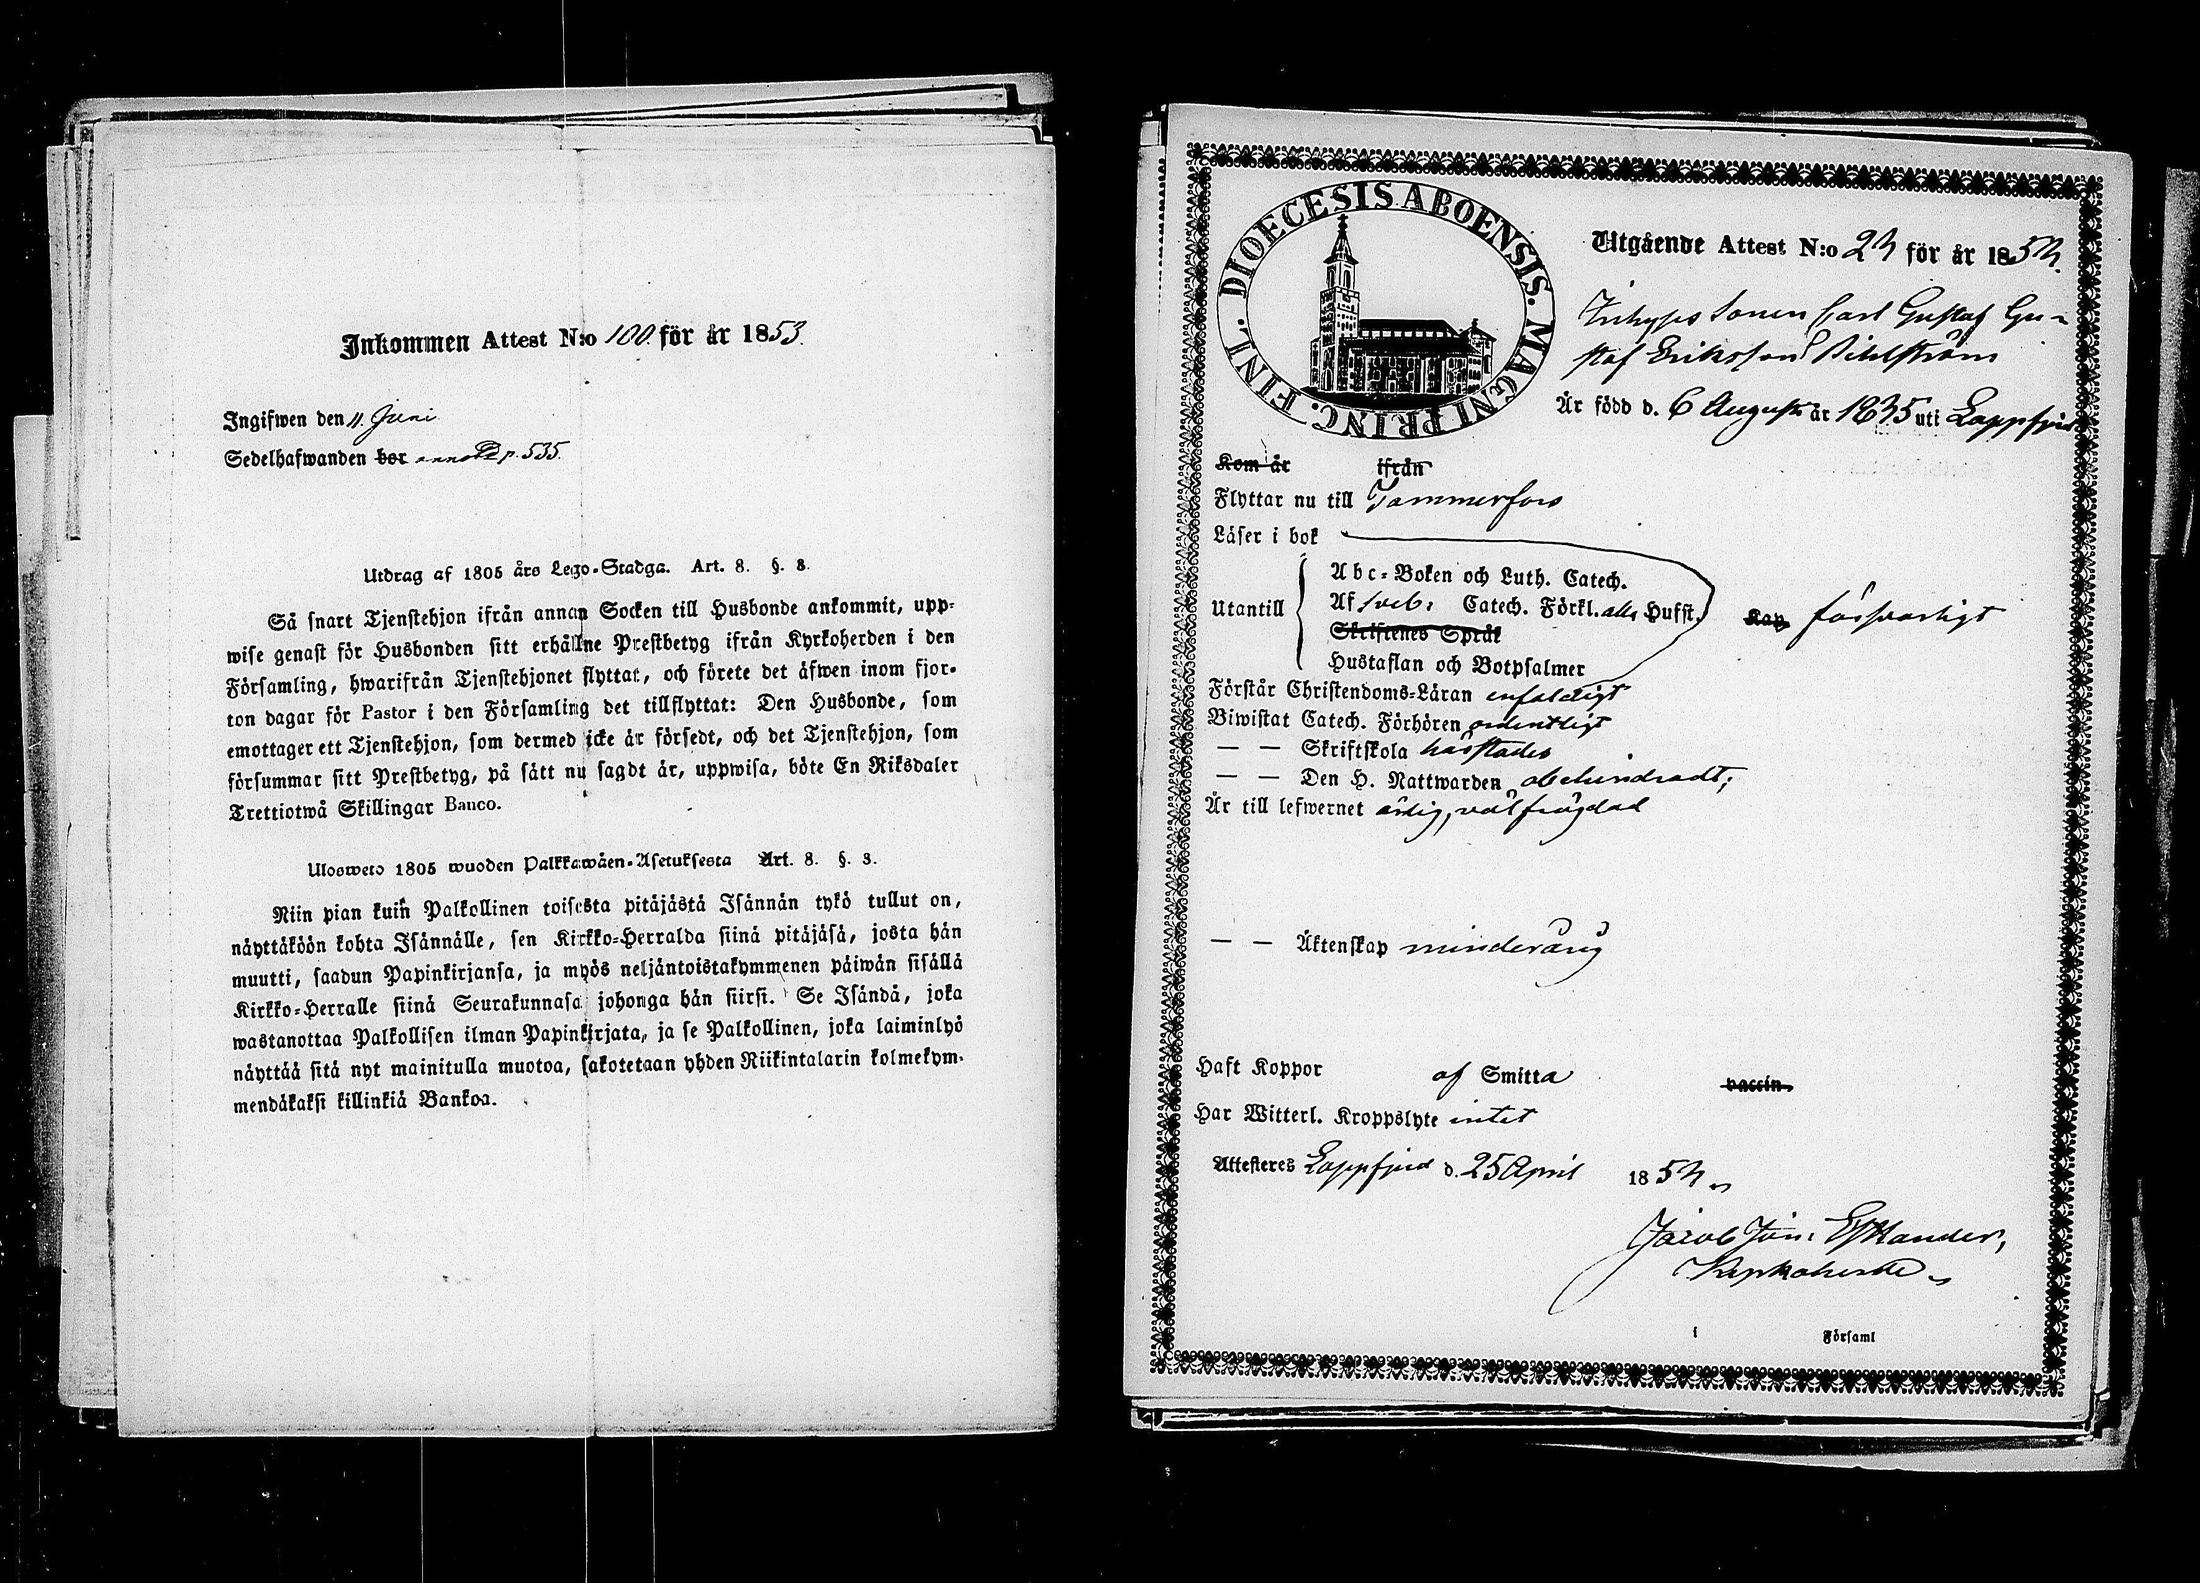 Inkommen Attest N:o 100 för år 1853.
Ingifwen den 11 Juni
Sedelhafwanden bor annot p. 535.
Utdrag af 1805 års Lego-Stadga. Art. 8. §. 8.
Så snart Tjenstehjon ifrån annan Socken till Husbonde ankommit, upp-
wise genast för Husbonden sitt erhållne Prestbetyg ifrån Kyrkoherden i den
Församling, hwarifrån Tjenstehjonet flyttat, och förete det äfwen inom fjor-
ton dagar för Pastor i den Församling det tillflyttat: Den Husbonde, som
emottager ett Tjenstehjon, som dermed icke är försedt, och det Tjenstehjon, som
försummar sitt Prestbetyg, på sätt nu sagdt är, uppwisa, böte En Riksdaler
Trettiotwå Skillingar Banco.
Ulosweto 1805 wuoden Palkkawäen-Asetuksesta Art. 8. §. 8.
Niin pian kuin Palkollinen toisesta pitäjästä Isännän tykö tullut on,
näyttäköön kohta Isännälle, sen Kirkko-Herralda siinä pitäjäsä, josta hän
muutti, saadun Papinkirjansa, ja myös neljäntoistakymmenen päiwän sisällä
Kirkko-Herralle siinä Seurakunnasa johonga hän siirsi. Se Isändä, joka
wastanottaa Palkollisen ilman Papinkirjata, ja se Palkollinen, joka laiminlyö
näyttää sitä nyt mainitulla muotoa, sakotetaan yhden Riikintalarin kolmekym-
mendäkaksi killinkiä Bankoa.
DIOECESIS ABOENSIS. MAGNI PRINC. FINL.
Utgående Attest N:o 23 för år 1853.
Inhyses Sonen Carl Gustaf Gu-
staf Eriksson
Är född d. 6 Augusti år 1835 uti Lappfjerd
Kom år ifrån
Flyttar nu till Tammerfors
Läser i bok
Abc-Boken och Luth. Catech.
Utantill Af Sveb: Catech. Förkl. alla Hufst. Kap försvarligt
Skriftenes Språk
Hustaflan och Botpsalmer
Förstår Christendoms-Läran enfaldigt
Biwistat Catech. Förhören ordentligt
— — Skriftskola härstädes
— — Den H. Nattwarden obehindradt;
Är till lefwernet ärlig, välfrägdad
— — Äktenskap minderårig
Haft Koppor af Smitta vaccin.
Har Witterl. Kroppslyte intet
Attesteres Lappfjerd d. 25 April 1853
Jacob Jon: Estlander,
Kyrkoherde
i Församl